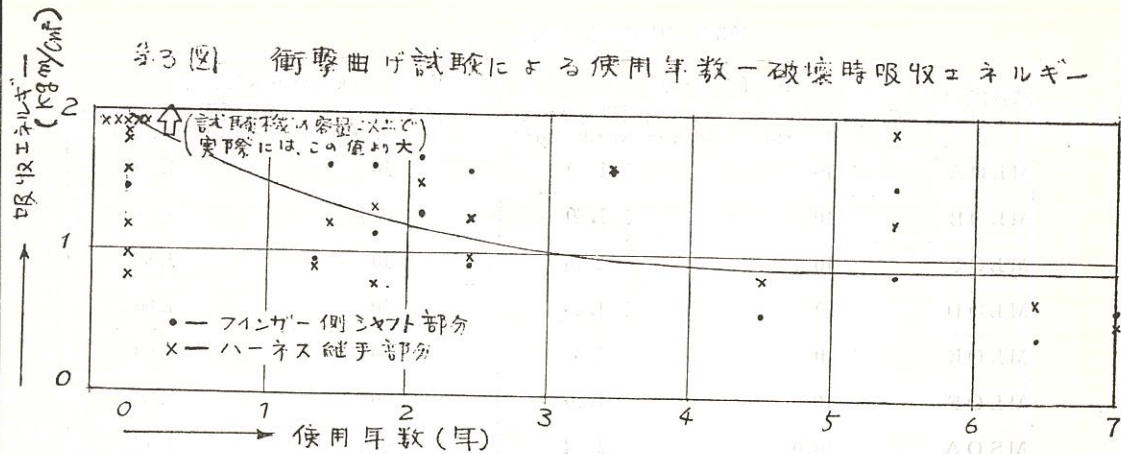 第3図 衝撃曲げ試験による使用年数ー破壊時吸収エネルギー
吸収エネルギー
(kgm/cm²)
2
(試験機の容量以上で
実際には、この値より大)
1
•ー フインガー側シャフト部分
×ー ハーネス継手部分
0
0 1 2 3 4 5 6 7
使用年数(年)